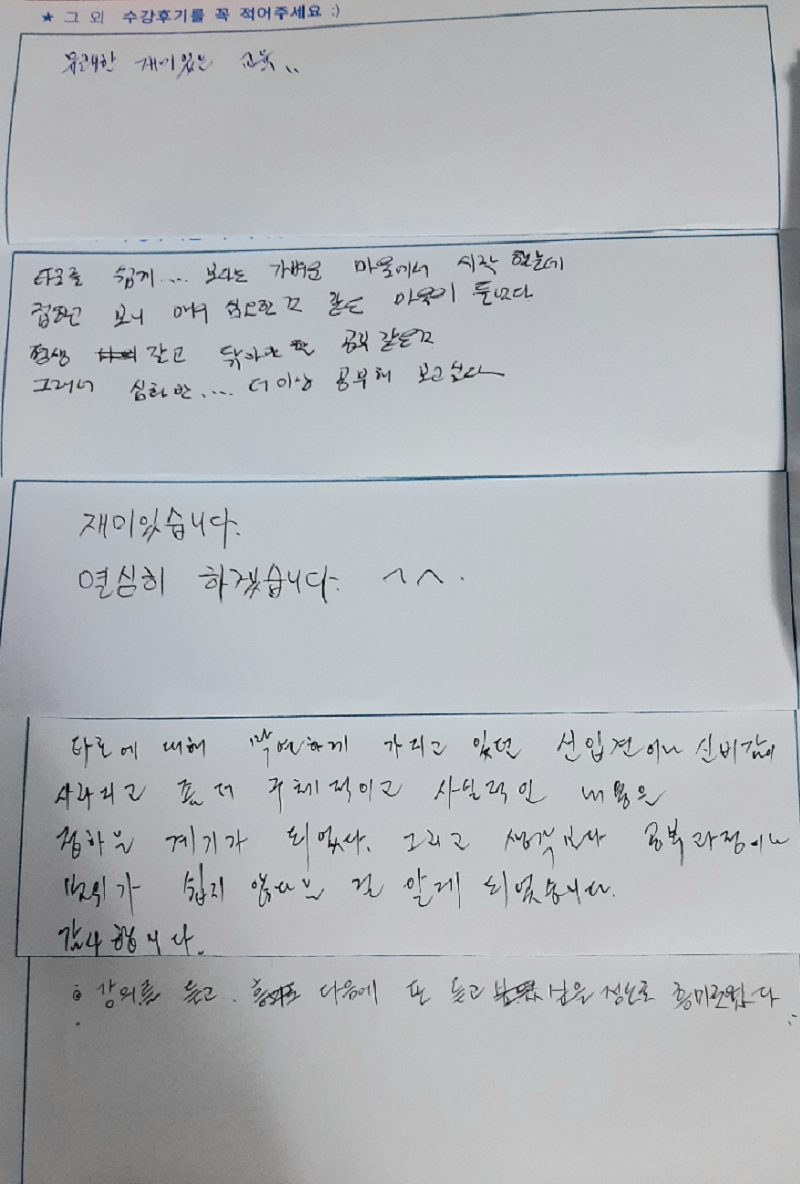 ★ 그 외 수강후기를 꼭 적어주세요 :)
유쾌한 재미있는 교육..
타로를 쉽게.... 보라는 가벼운 마음에서 시작 했는데
접하고 보니 아주 심오한 것 같은 마음이 든다
평생 갖고 닦아야 할 공부 같은것
그래서 심화반.... 더이상 공부해 보고싶다
재미있습니다.
열심히 하겠습니다. ^^.
타로에 대해 막연하게 가지고 있던 선입견이나 신비감이
사라지고 좀 더 구체적이고 사실적인 내용을
접하는 계기가 되었다. 그리고 생각보다 공부과정이나
범위가 쉽지 않다는 걸 알게 되었습니다.
감사합니다.
강의를 듣고. 다음에 또 듣고 싶을 정도로 흥미로웠다